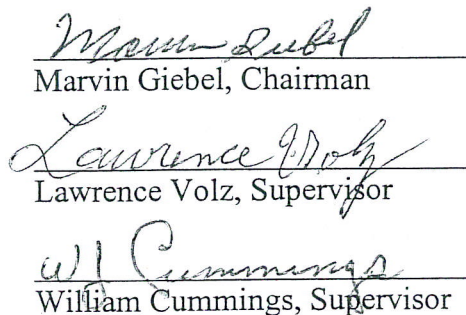 Marvin Giebel
Marvin Giebel, Chairman
Lawrence J. Volz
Lawrence Volz, Supervisor
WJ Cummings
William Cummings, Supervisor